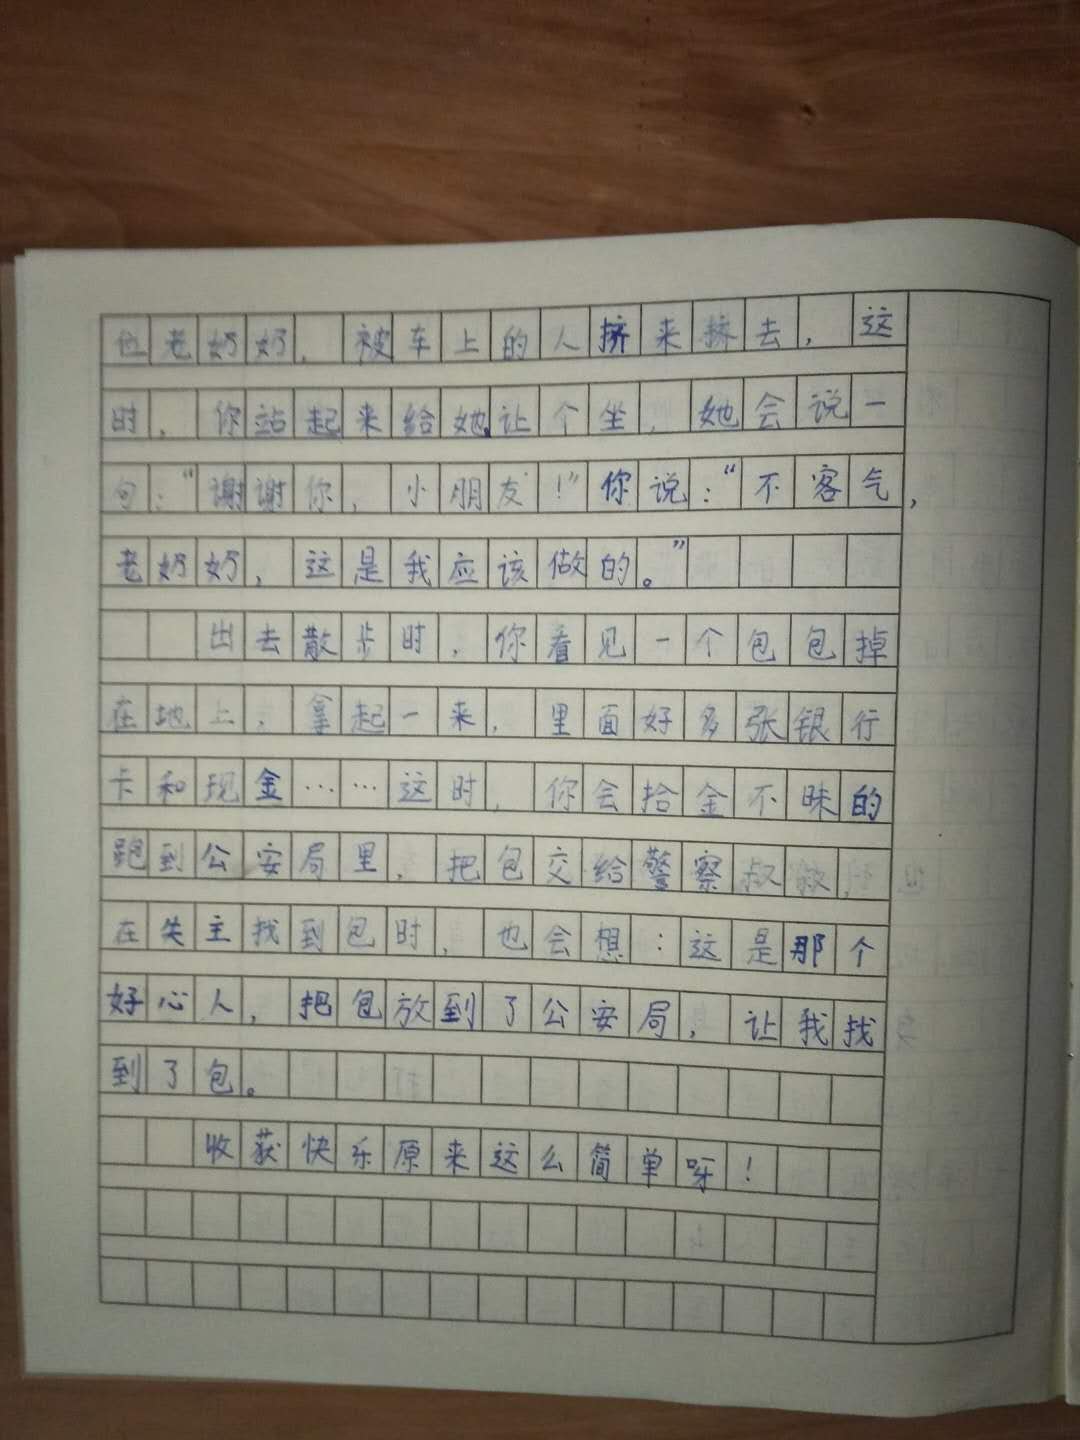 位老奶奶，被车上的人挤来挤去，这
时，你站起来给她让个坐，她会说一
句：“谢谢你，小朋友！”你说：“不客气，
老奶奶，这是我应该做的。”
出去散步时，你看见一个包包掉
在地上，拿起一来，里面好多张银行
卡和现金……这时，你会拾金不昧的
跑到公安局里，把包交给警察叔叔，
在失主找到包时，也会想：这是那个
好心人，把包放到了公安局，让我找
到了包。
收获快乐原来这么简单呀！